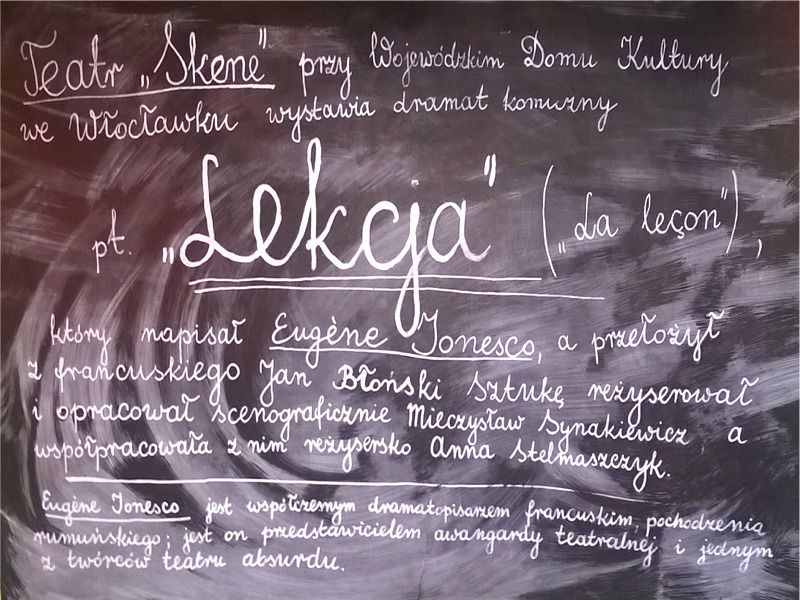 Teatr „Skene" przy Wojewódzkim Domu Kultury
we Włocławku wystawia dramat komiczny
pt. „Lekcja" („La leçon"),
który napisał Eugène Ionesco, a przełożył
z francuskiego Jan Błoński Sztukę reżyserował
i opracował scenograficznie Mieczysław Synakiewicz, a
współpracowała z nim reżysersko Anna Stelmaszczyk.
Eugène Ionesco jest współczesnym dramatopisarzem francuskim, pochodzenia
rumuńskiego; jest on przedstawicielem awangardy teatralnej i jednym
z twórców teatru absurdu.